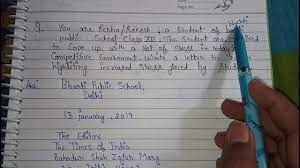 Q. You are Rekha/Rakesh, a student of
public School class XII. The student are
to cope up with a lot of stress in today's
Competitive Enviroment. Write a letter to
increased stress faced by
Bharti Public School,
Delhi
13 January, 2019
The Editor
The Times of India
Bahadur Shah Zafar Marg